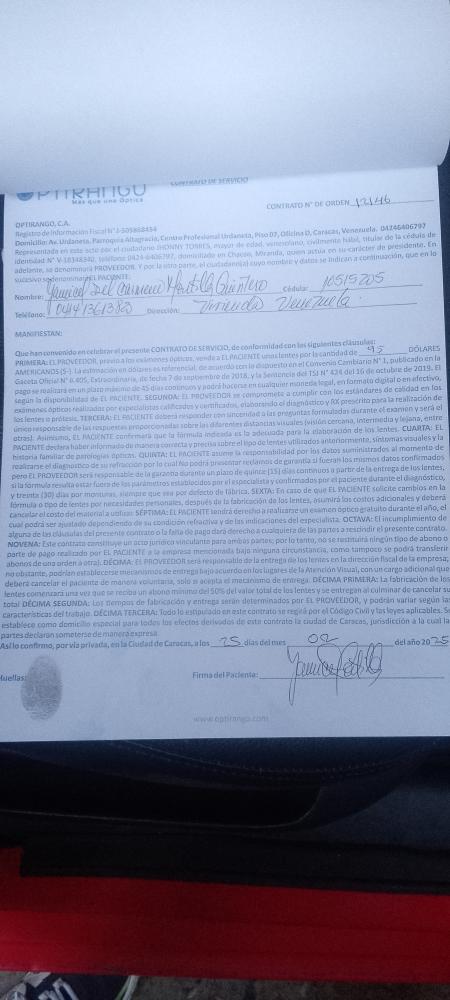 OPTIRANGO
Más que una Óptica
CONTRATO DE SERVICIO
CONTRATO N° DE ORDEN 12146
OPTIRANGO, C.A.
Registro de Información Fiscal N° J-505868454
Domicilio: Av. Urdaneta, Parroquia Altagracia, Centro Profesional Urdaneta, Piso 07, Oficina D, Caracas, Venezuela. 04246406797
Representada en este acto por el ciudadano JHONNY TORRES, mayor de edad, venezolano, civilmente hábil, titular de la cédula de
identidad N° V-18348340, teléfono 0424-6406797, domiciliado en Chacao, Miranda, quien actúa en su carácter de presidente. En
adelante, se denominará PROVEEDOR. Y por la otra parte, el ciudadano(a) cuyo nombre y datos se indican a continuación, que en lo
sucesivo se denominará EL PACIENTE:
Nombre: del Carmen Quintero Cédula: 10515205
Teléfono: Dirección: Venezuela.
MANIFIESTAN:
Que han convenido en celebrar el presente CONTRATO DE SERVICIO, de conformidad con las siguientes cláusulas:
PRIMERA: EL PROVEEDOR, previo a los exámenes ópticos, vende a EL PACIENTE unos lentes por la cantidad de 95 DÓLARES
AMERICANOS ($-). La estimación en dólares es referencial, de acuerdo con lo dispuesto en el Convenio Cambiario N° 1, publicado en la
Gaceta Oficial N° 6.405, Extraordinaria, de fecha 7 de septiembre de 2018, y la Sentencia del TSJ N° 424 del 16 de octubre de 2019. El
pago se realizará en un plazo máximo de 45 días continuos y podrá hacerse en cualquier moneda legal, en formato digital o en efectivo,
según la disponibilidad de EL PACIENTE. SEGUNDA: EL PROVEEDOR se compromete a cumplir con los estándares de calidad en los
exámenes ópticos realizados por especialistas calificados y certificados, elaborando el diagnóstico y RX prescrito para la realización de
los lentes o prótesis. TERCERA: EL PACIENTE deberá responder con sinceridad a las preguntas formuladas durante el examen y será el
único responsable de las respuestas proporcionadas sobre las diferentes distancias visuales (visión cercana, intermedia y lejana, entre
otras). Asimismo, EL PACIENTE confirmará que la fórmula indicada es la adecuada para la elaboración de los lentes. CUARTA: EL
PACIENTE declara haber informado de manera correcta y precisa sobre el tipo de lentes utilizados anteriormente, síntomas visuales y la
historia familiar de patologías ópticas. QUINTA: EL PACIENTE asume la responsabilidad por los datos suministrados al momento de
realizarse el diagnóstico de su refracción por lo cual No podrá presentar reclamos de garantía si fueran los mismos datos confirmados
pero EL PROVEEDOR será responsable de la garantía durante un plazo de quince (15) días continuos a partir de la entrega de los lentes,
si la fórmula resulta estar fuera de los parámetros establecidos por el especialista y confirmados por el paciente durante el diagnóstico,
y treinta (30) días por monturas, siempre que sea por defecto de fábrica. SEXTA: En caso de que EL PACIENTE solicite cambios en la
fórmula o tipo de lentes por necesidades personales, después de la fabricación de los lentes, asumirá los costos adicionales y deberá
cancelar el costo del material a utilizar. SÉPTIMA: EL PACIENTE tendrá derecho a realizarse un examen óptico gratuito durante el año, el
cual podrá ser ajustado dependiendo de su condición refractiva y de las indicaciones del especialista. OCTAVA: El incumplimiento de
alguna de las cláusulas del presente contrato o la falta de pago dará derecho a cualquiera de las partes a rescindir el presente contrato.
NOVENA: Este contrato constituye un acto jurídico vinculante para ambas partes; por lo tanto, no se restituirá ningún tipo de abono o
parte de pago realizado por EL PACIENTE a la empresa mencionada bajo ninguna circunstancia, como tampoco se podrá transferir
abonos de una orden a otra). DÉCIMA: El PROVEEDOR será responsable de la entrega de los lentes en la dirección fiscal de la empresa;
no obstante, podrían establecerse mecanismos de entrega bajo acuerdo en los lugares de la Atención Visual, con un cargo adicional que
deberá cancelar el paciente de manera voluntaria, solo si acepta el mecanismo de entrega. DÉCIMA PRIMERA: La fabricación de los
lentes comenzará una vez que se reciba un abono mínimo del 50% del valor total de los lentes y se entregan al culminar de cancelar su
total DÉCIMA SEGUNDA: Los tiempos de fabricación y entrega serán determinados por EL PROVEEDOR, y podrán variar según la
características del trabajo. DÉCIMA TERCERA: Todo lo estipulado en este contrato se regirá por el Código Civil y las leyes aplicables. Se
establece como domicilio especial para todos los efectos derivados de este contrato la ciudad de Caracas, jurisdicción a la cual la
partes declaran someterse de manera expresa.
Así lo confirmo, por vía privada, en la Ciudad de Caracas, a los 25 días del mes 02 del año 2025
Huellas: Firma del Paciente:
www.optirango.com